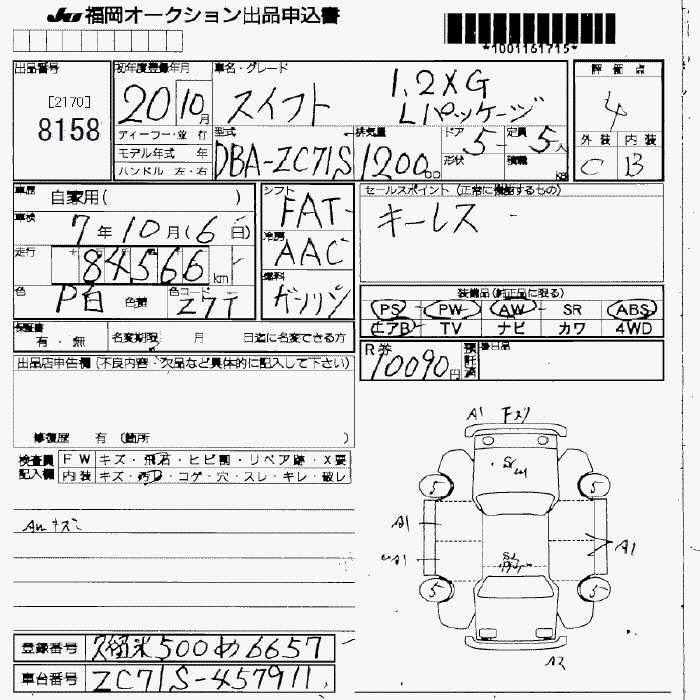 JU 福岡オークション出品申込書
*1001161715*
出品番号
[2170]
8158
初年度登録年月
20 10月
車名・グレード
スイフト
1.2XG
Lパッケージ
評価点
4
外装 内装
C B
ディーラー・並行
モデル年式 年
ハンドル 左・右
型式
DBA-ZC71S
排気量
1200 cc
ドア 5
形状
定員 5人
積載 kg
車歴 自家用( )
車検 7年10月(6日)
走行 84566 km
色 P白 色替 色コード Z7T
シフト FAT
冷房 AAC
燃料 ガソリン
セールスポイント (正常に機能するもの)
キーレス
装備品(純正品に限る)
PS PW AW SR ABS
エアB TV ナビ カワ 4WD
保証書 有・無
名変期限 月 日迄に名変できる方
R券 10090円
預託済
後日品
出品店申告欄 (不良内容・欠品など具体的に記入して下さい)
修復歴 有 (箇所 )
検査員記入欄
FW キズ・飛石・ヒビ割・リペア跡・X要
内装 キズ・汚れ・コゲ・穴・スレ・キレ・破レ
A1 下スリ
5 5
A1
A1
A1
5 5
A2
登録番号 久留米500め6657
車台番号 ZC71S-457911